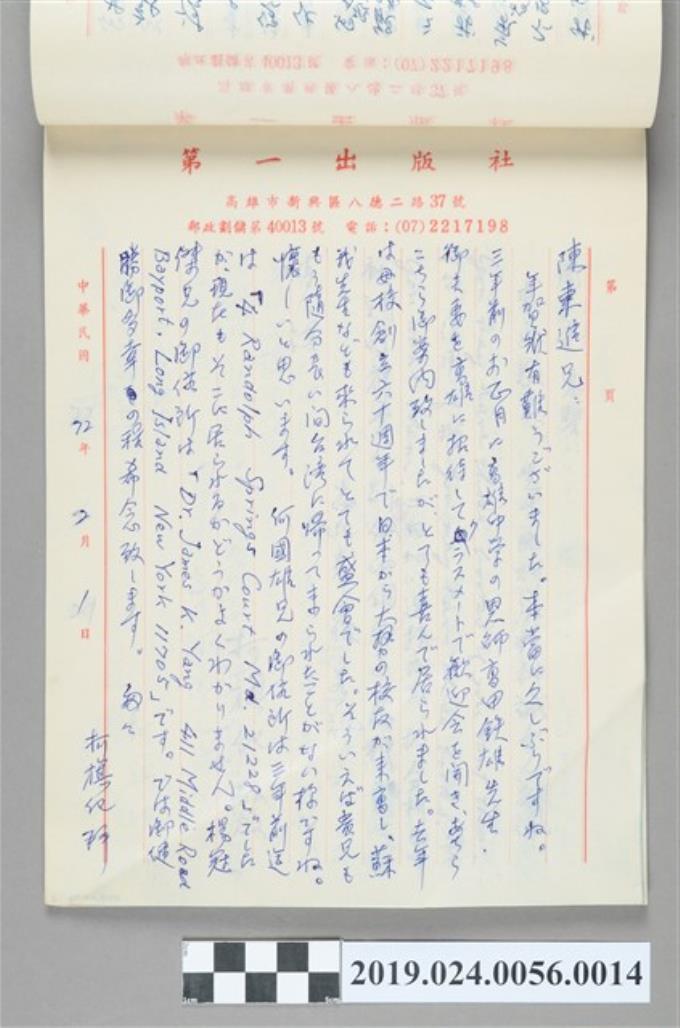 郵政劃儲第40013號 電話：(07)2217198
高雄市新興區八德二路37號
第一出版社
第一出版社
高雄市新興區八德二路37號
郵政劃儲第40013號 電話：(07)2217198
第 頁
陳東遠兄：
年賀状有難うございました。本当に久しぶりですね。
三年前のお正月に高雄中学の恩師高田鉄雄先生
御夫妻を高雄に招待してクラスメートで歓迎会を開き、あちら
こちら御案内致しましたが、とても喜んで居られました。去年
は母校創立六十週年で日本から大勢の校友が来高し、蘇
我先生なども来られてとても盛会でした。そういえば貴兄も
もう随分長い間台湾に帰ってまゐられたことがない様ですね。
懐しいと思います。何國雄兄の御住所は三年前迄
は「4 Randolph Springs Court Md. 21228」でした
が、現在もそこに居られるかどうかよくわかりません。楊冠
傑兄の御住所は「Dr. James K. Yang 411 Middle Road
Bayport, Long Island New York 11705」です。では御健
勝御多幸の程希念致します。 匆々
柯旗化 拜
中華民國 72 年 2 月 1 日
2019.024.0056.0014